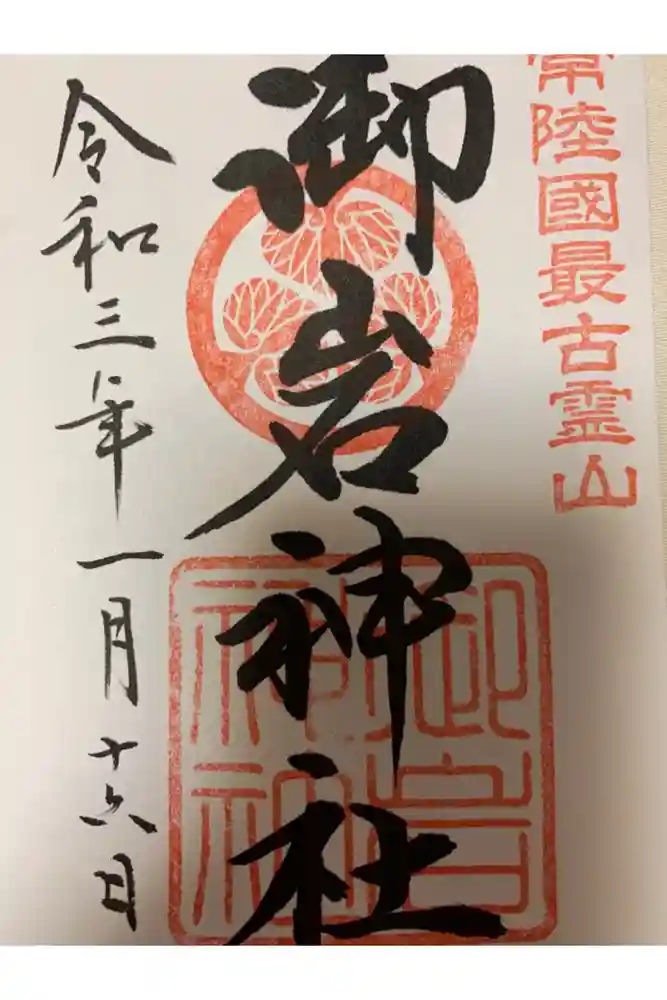 常陸國最古霊山
御岩神社
御岩神社
令和三年一月十六日